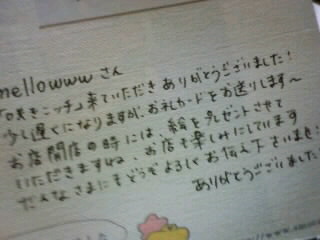 mellowwwさん
「咲きニッチ」来ていただきありがとうございました!
少し遅くになりますが、お礼カードをお送りします〜
お店開店の時には、絵をプレゼントさせて
いただきますね、お店も楽しみにしています
だんなさまにもどうぞよろしくお伝え下さいませ!
ありがとうございました!
ました
www.